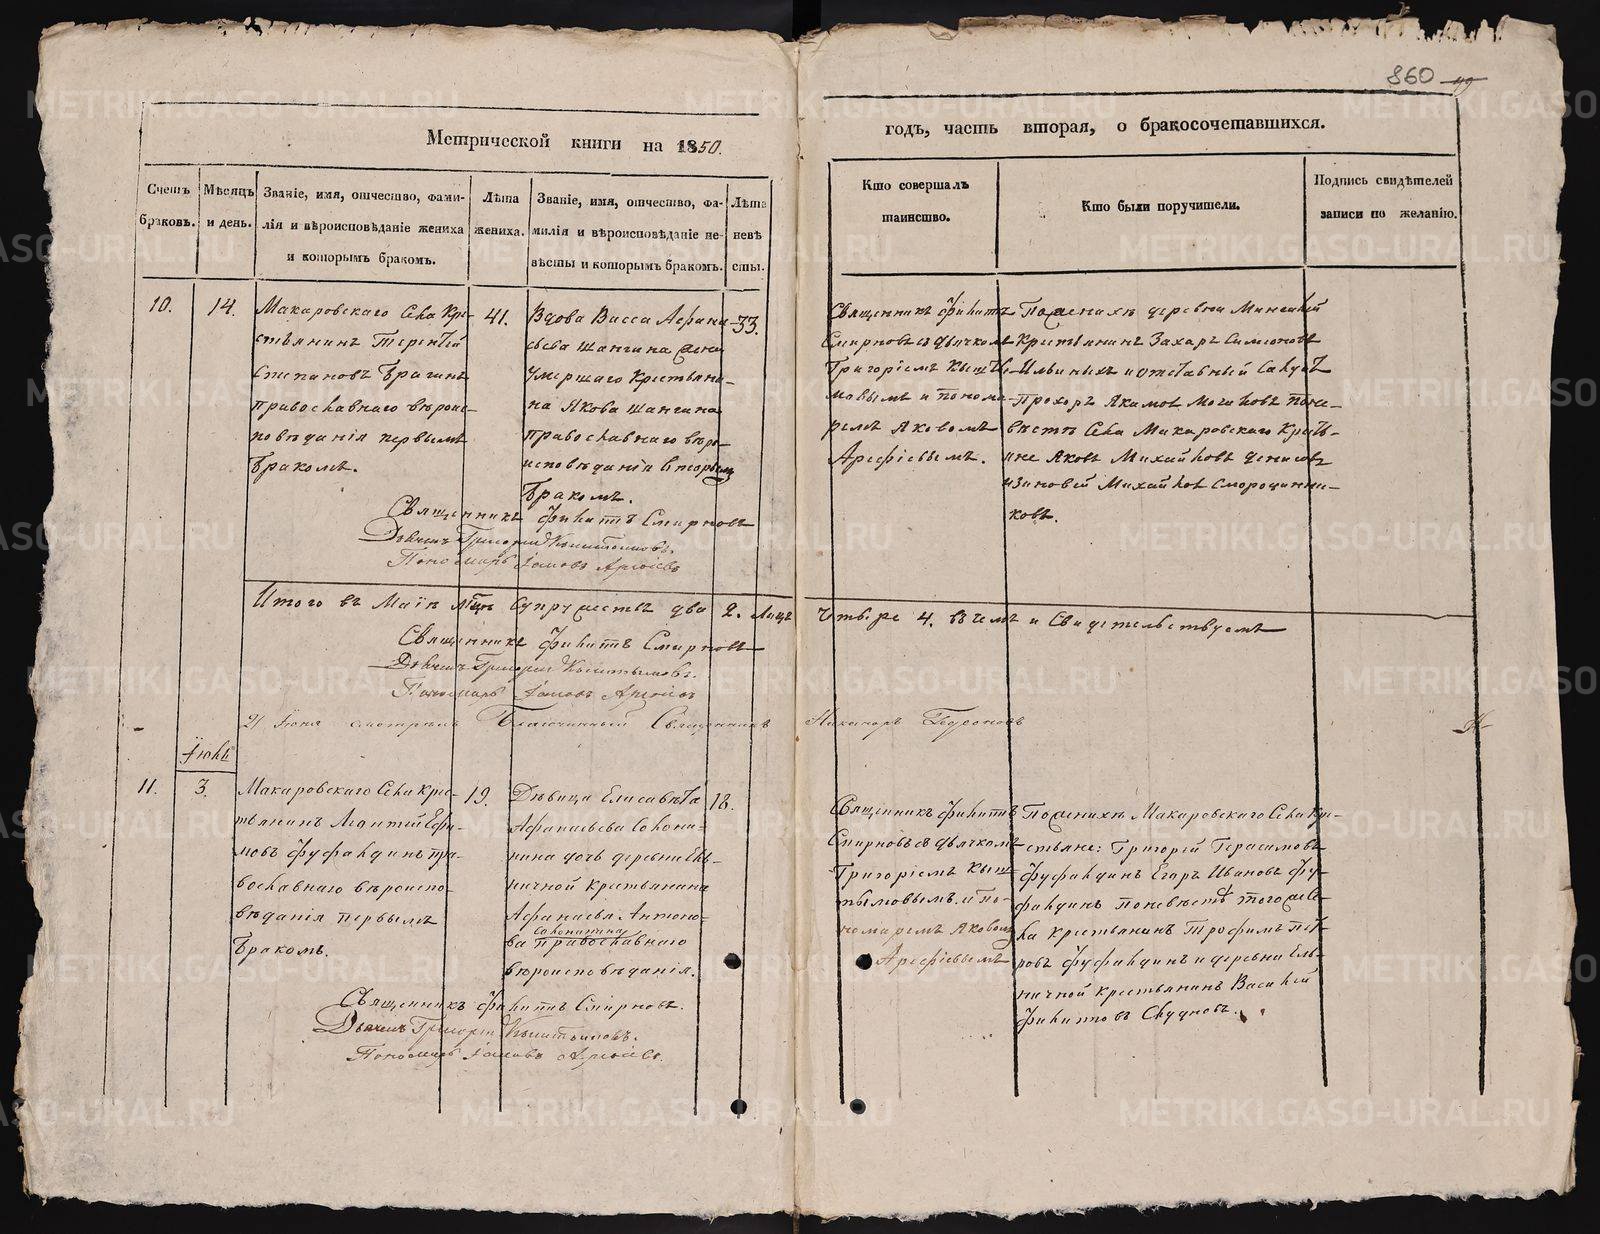 860 49
Метрической книги на 1850.
годъ, часть вторая, о бракосочетавшихся.
Счетъ браковъ.
Мѣсяцъ и день.
Званіе, имя, отчество, фами-
лія и вѣроисповѣданіе жениха
и которымъ бракомъ.
Лѣта
жениха.
Званіе, имя, отчество, фа-
милія и вѣроисповѣданіе не-
вѣсты и которымъ бракомъ.
Лѣта
невѣ
сты.
Кто совершалъ
таинство.
Кто были поручители.
Подпись свидѣтелей
записи по желанію.
10.
14.
Макаровскаго Села Кре-
стьянинъ Терентій
Степановъ Брагинъ
православнаго вѣроис-
повѣданія первымъ
бракомъ.
41.
Вдова Васса Афана-
сьева Шангина жена
умершаго Крестьяни-
на Якова Шангина
православнаго вѣро-
исповѣданія вторымъ
бракомъ.
33.
Священникъ Филиппъ
Смирновъ съ дьячкомъ
Григоріемъ Кышты-
мовымъ и понома-
ремъ Яковомъ
Арефіевымъ.
По женихѣ деревни
Крестьянинъ Захаръ Симеоновъ
Ильиныхъ и отставный Салдатъ
Прохоръ Якимовъ по не-
вѣстѣ Села Макаровскаго Кресть-
яне Яковъ Михайловъ Денисовъ
и Зиновей Михайловъ Смородинни-
ковъ.
Священникъ Филиппъ Смирновъ
Дьячекъ Григорій Кыштымовъ.
Пономарь Іаковъ Арефіевъ
Итого въ Маѣ м-цѣ супружествъ два 2. лицъ четыре 4. въ чемъ и свидетельствуемъ
Священникъ Филиппъ Смирновъ
Дьячекъ Григорій Кыштымовъ.
Пономарь Іаковъ Арефіевъ
21 Іюня смотрѣлъ Благочинный Священникъ Никаноръ
Іюнь
11.
3.
Макаровскаго Села Кре-
стьянинъ Леонтей Ефи-
мовъ Фуфалдинъ пра-
вославнаго вѣроиспо-
вѣданія первымъ
бракомъ.
19.
Дѣвица Елисавета
Афанасьева Солони-
нина дочь деревни Ель-
ничной крестьянина
Афанасья Антоно-
ва Солонинина православнаго
вѣроисповѣданія.
18.
Священникъ Филиппъ
Смирновъ съ дьячкомъ
Григоріемъ Кыш-
тымовымъ. и по-
номаремъ Яковомъ
Арефіевымъ
По женихѣ Макаровскаго Села Кре-
стьяне: Григорій Герасимовъ
Фуфалдинъ Егоръ Ивановъ Фу-
фалдинъ по невѣстѣ того же Се-
ла крестьянинъ Трофимъ Пет-
ровъ Фуфалдинъ и деревни Ель-
ничной крестьянинъ Василей
Филипповъ Скудновъ.
Священникъ Филиппъ Смирновъ.
Дьячекъ Григорій Кыштымовъ.
Пономарь Іаковъ Арефіевъ.
METRIKI.GASO-URAL.RU